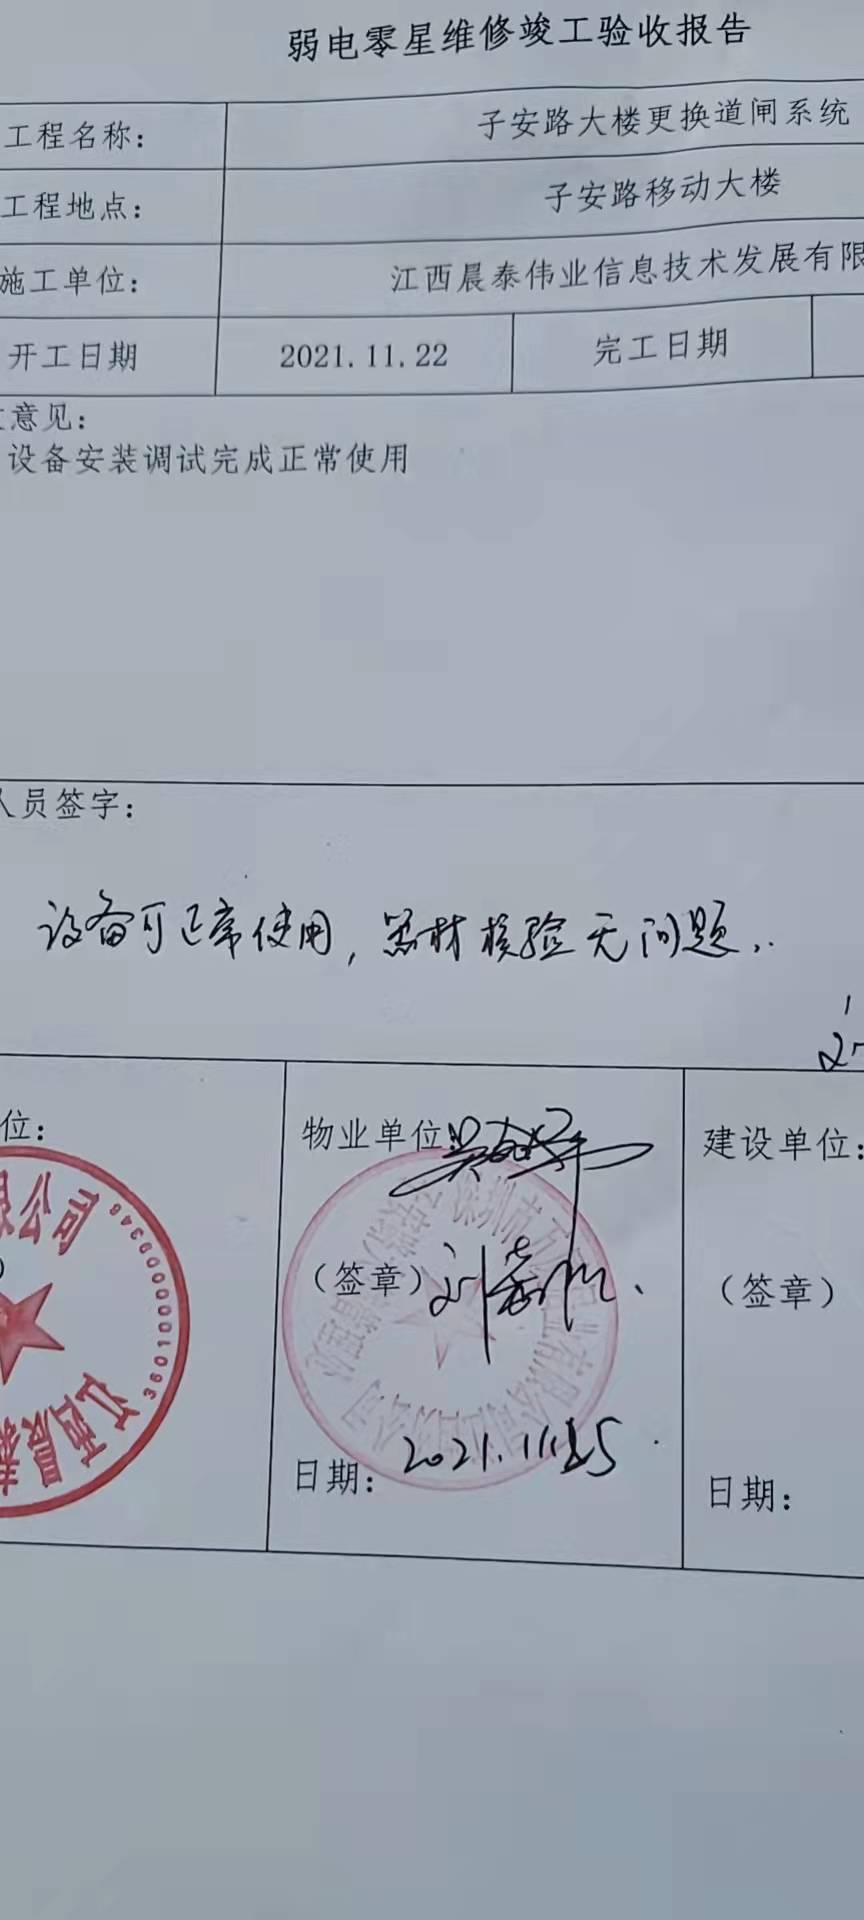 弱电零星维修竣工验收报告
工程名称： 子安路大楼更换道闸系统
工程地点： 子安路移动大楼
施工单位： 江西晨泰伟业信息技术发展有限
开工日期 2021.11.22 完工日期
意见：
设备安装调试完成正常使用
人员签字：
设备可正常使用，器材核验无问题..
位： 物业单位 建设单位：
（签章） （签章）
日期： 2021.11.25 日期：
江西晨泰
限公司
3601000009346